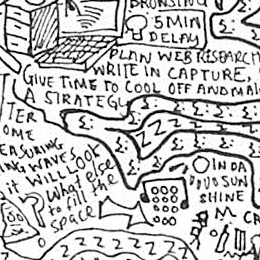 5 MIN
DELAY
PLAN WEB RESEARCH
WRITE IN CAPTURE,
GIVE TIME TO COOL OFF AND MA
A STRATEGY
OME
EASURING
ING WAVES
it WILL LOOK
What else
to fill the
space
IN DA
SUN
SHINE
M CA
Z Z Z Z Z Z Z